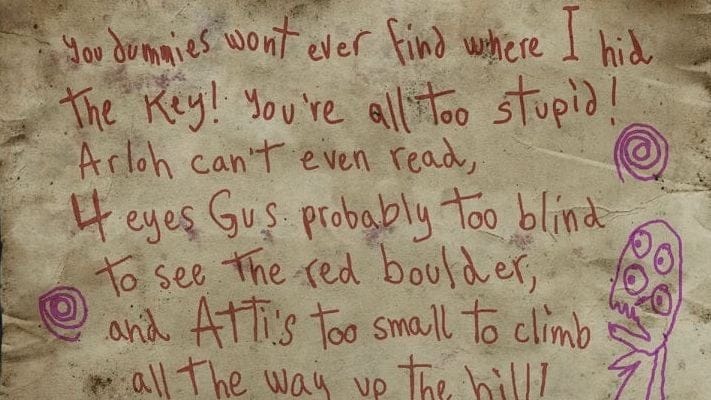 you dummies wont ever find where I hid
the key! you're all too stupid!
Arloh can't even read,
4 eyes Gus probably too blind
to see the red boulder,
and Atti's too small to climb
all the way up the hill!